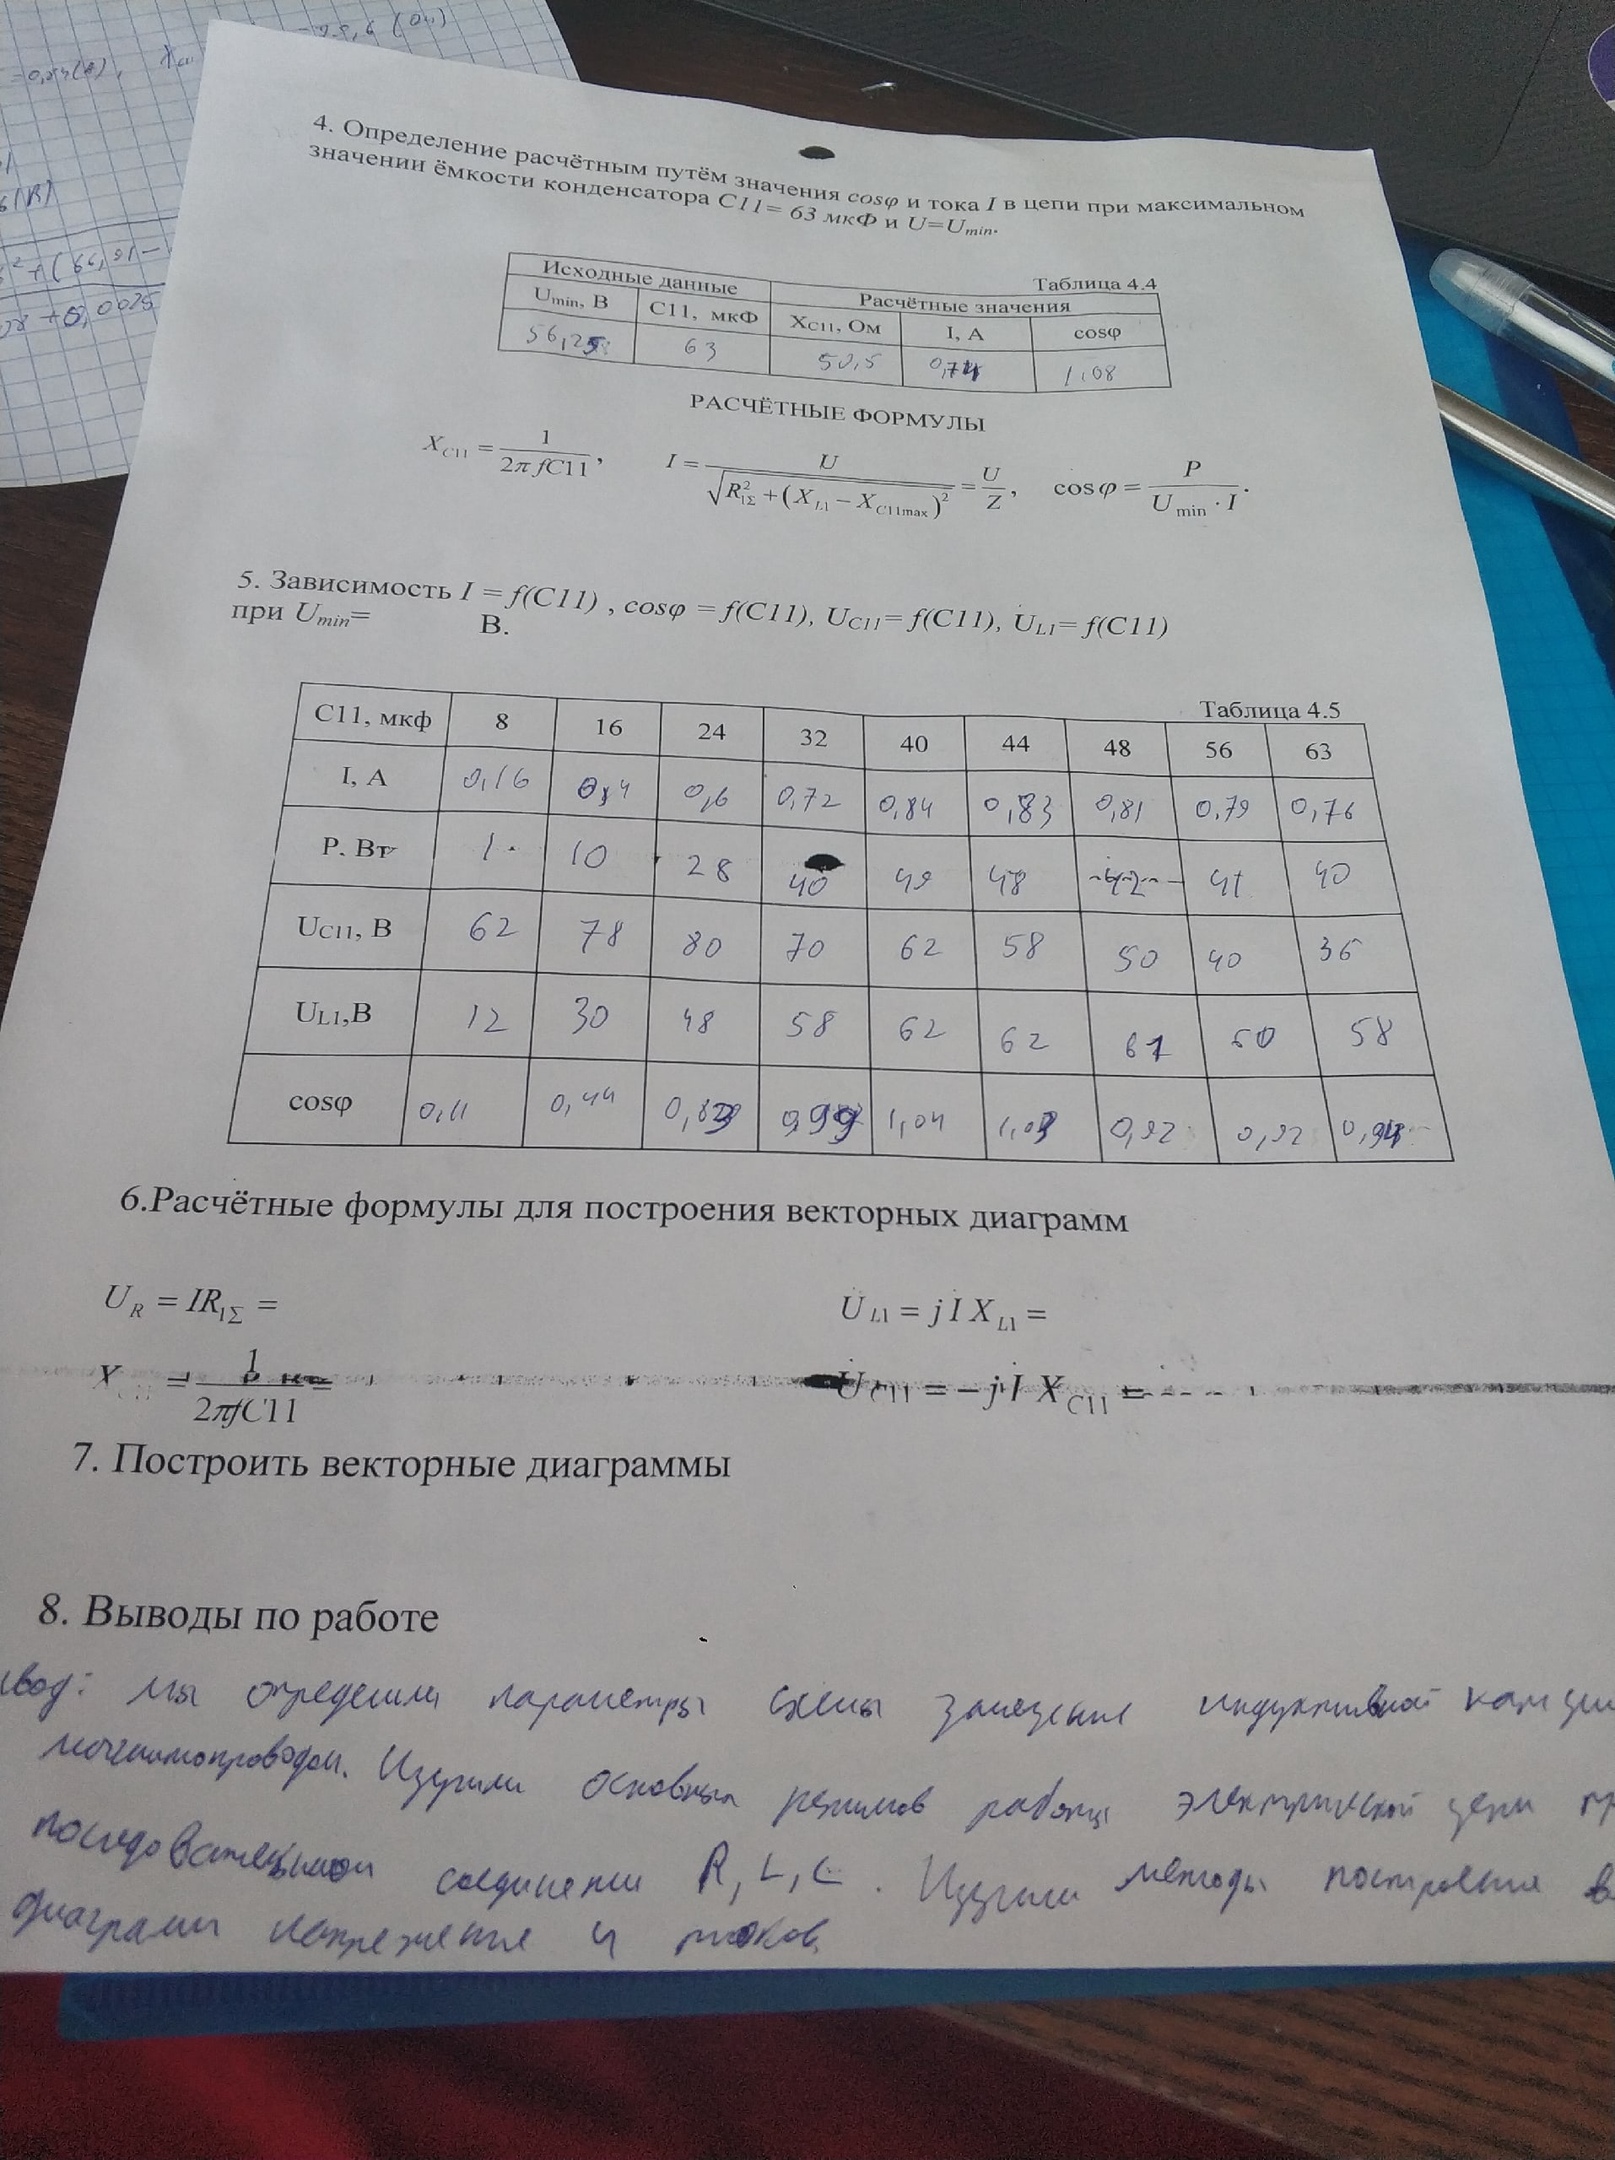 =0,84(А),
4. Определение расчётным путём значения cosφ и тока I в цепи при максимальном
значении ёмкости конденсатора C11= 63 мкФ и U=Umin.
Таблица 4.4
Исходные данные Расчётные значения
Umin, В C11, мкФ XC11, Ом I, А cosφ
56,25 63 50,5 0,74 1,08
РАСЧЁТНЫЕ ФОРМУЛЫ
X_C11 = 1/(2π fC11), I = U/√(R²_1Σ + (X_L1 − X_C11max)²) = U/Z, cosφ = P/(U_min · I).
5. Зависимость I = f(C11) , cosφ = f(C11), UC11= f(C11), UL1= f(C11)
при Umin= В.
Таблица 4.5
C11, мкф 8 16 24 32 40 44 48 56 63
I, А 0,16 0,4 0,6 0,72 0,84 0,83 0,81 0,79 0,76
P. Вт 1 10 28 40 49 48 42 41 40
UC11, В 62 78 80 70 62 58 50 40 36
UL1,В 12 30 48 58 62 62 61 60 58
cosφ 0,11 0,44 0,83 0,99 1,04 1,03 0,92 0,92 0,94
6.Расчётные формулы для построения векторных диаграмм
U_R = IR_1Σ = U̇_L1 = j İ X_L1 =
X_C11 = 1/(2πfC11) = U̇_C11 = −j İ X_C11 =
7. Построить векторные диаграммы
8. Выводы по работе
мы определили параметры схемы замещение индуктивной
Изучили основных режимов работы электрической цепи
последовательном соединении R, L, C. Изучили методы построения
диаграмм напряжение и токов.